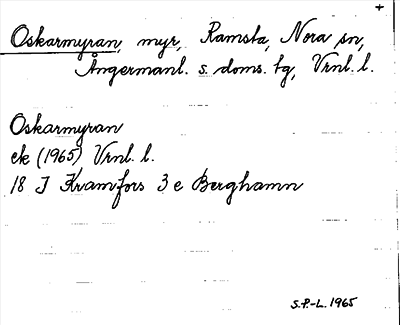 +
Oskarmyran, myr, Ramsta, Nora sn,
Ångermanl. s. doms. tg, Vrnl. l.
Oskarmyran
ek (1965) Vrnl. l.
18 I Kramfors 3 e Berghamn
S.P.-L. 1965